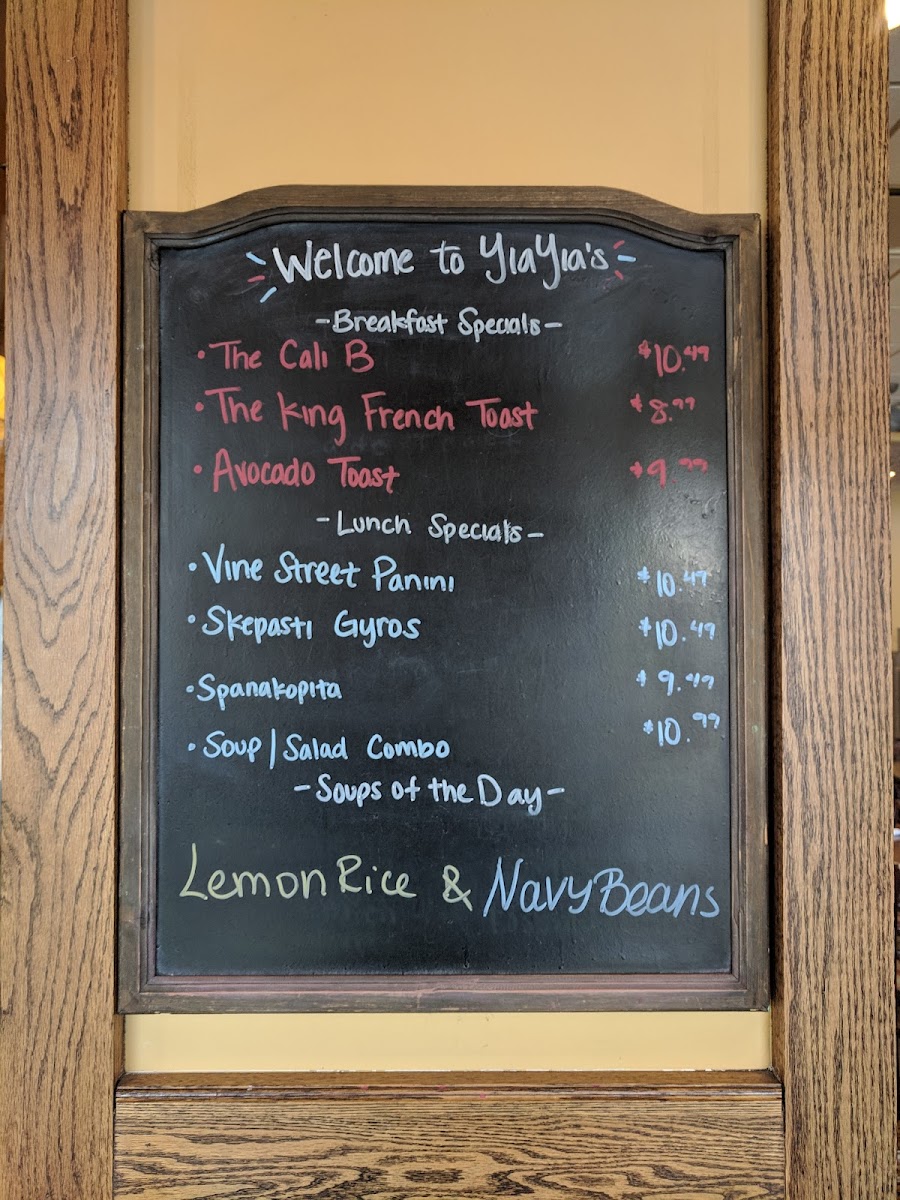 Welcome to YiaYia's
-Breakfast Specials-
•The Cali B $10.49
•The King French Toast $8.99
•Avocado Toast $9.99
-Lunch Specials-
•Vine Street Panini $10.49
•Skepasti Gyros $10.49
•Spanakopita $9.49
•Soup/Salad Combo $10.99
-Soups of the Day-
Lemon Rice & Navy Beans